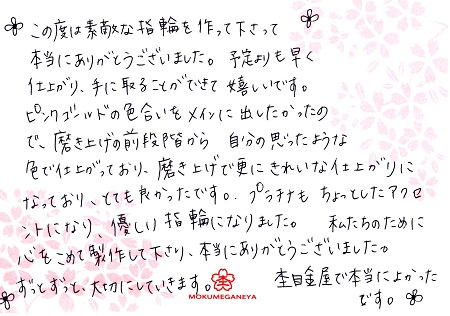 この度は素敵な指輪を作って下さって
本当にありがとうございました。予定よりも早く
仕上がり、手に取ることができて嬉しいです。
ピンクゴールドの色合いをメインに出したかったの
で、磨き上げの前段階から 自分の思ったような
色で仕上がっており、磨き上げで更にきれいな仕上がりに
なっており、とても良かったです。プラチナも ちょっとしたアクセ
ントになり、優しい指輪になりました。 私たちのために
心をこめて製作して下さり、本当にありがとうございました。
ずっとずっと、大切にしていきます。 杢目金屋で本当によかった
です。
MOKUMEGANEYA